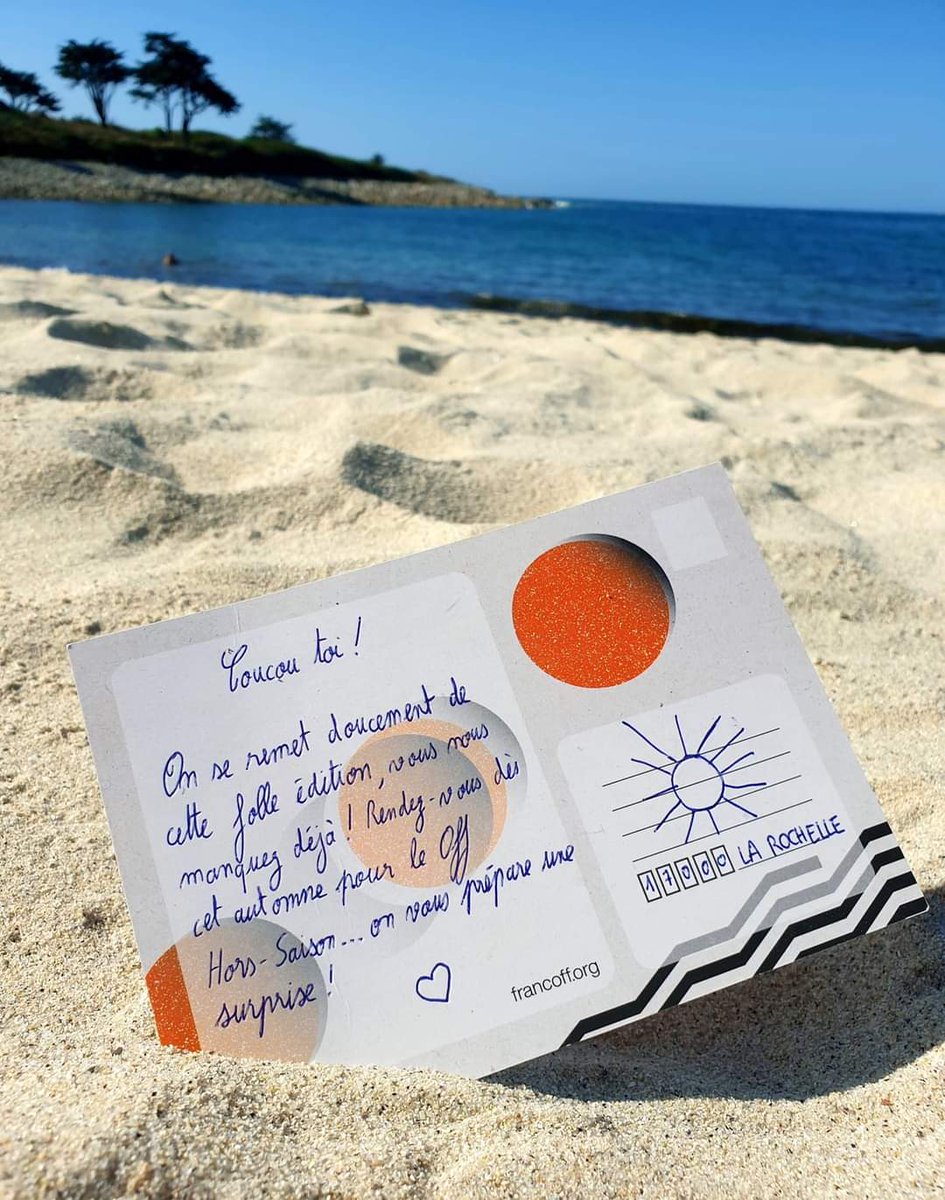 Coucou toi !
On se remet doucement de
cette folle édition, vous nous
manquez déjà ! Rendez-vous dès
cet automne pour le Off
Hors-Saison... on vous prépare une
surprise !
francoff.org
17000 LA ROCHELLE